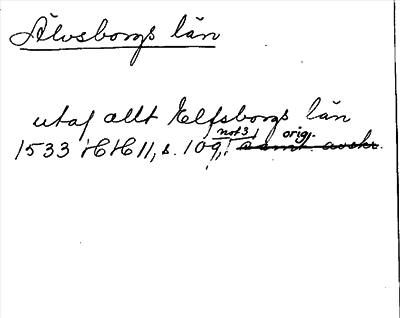 Älvsborgs län
utaf allt Elfsborgs län
not 3 orig.
1533 HH 11, s. 109, samt avskr.